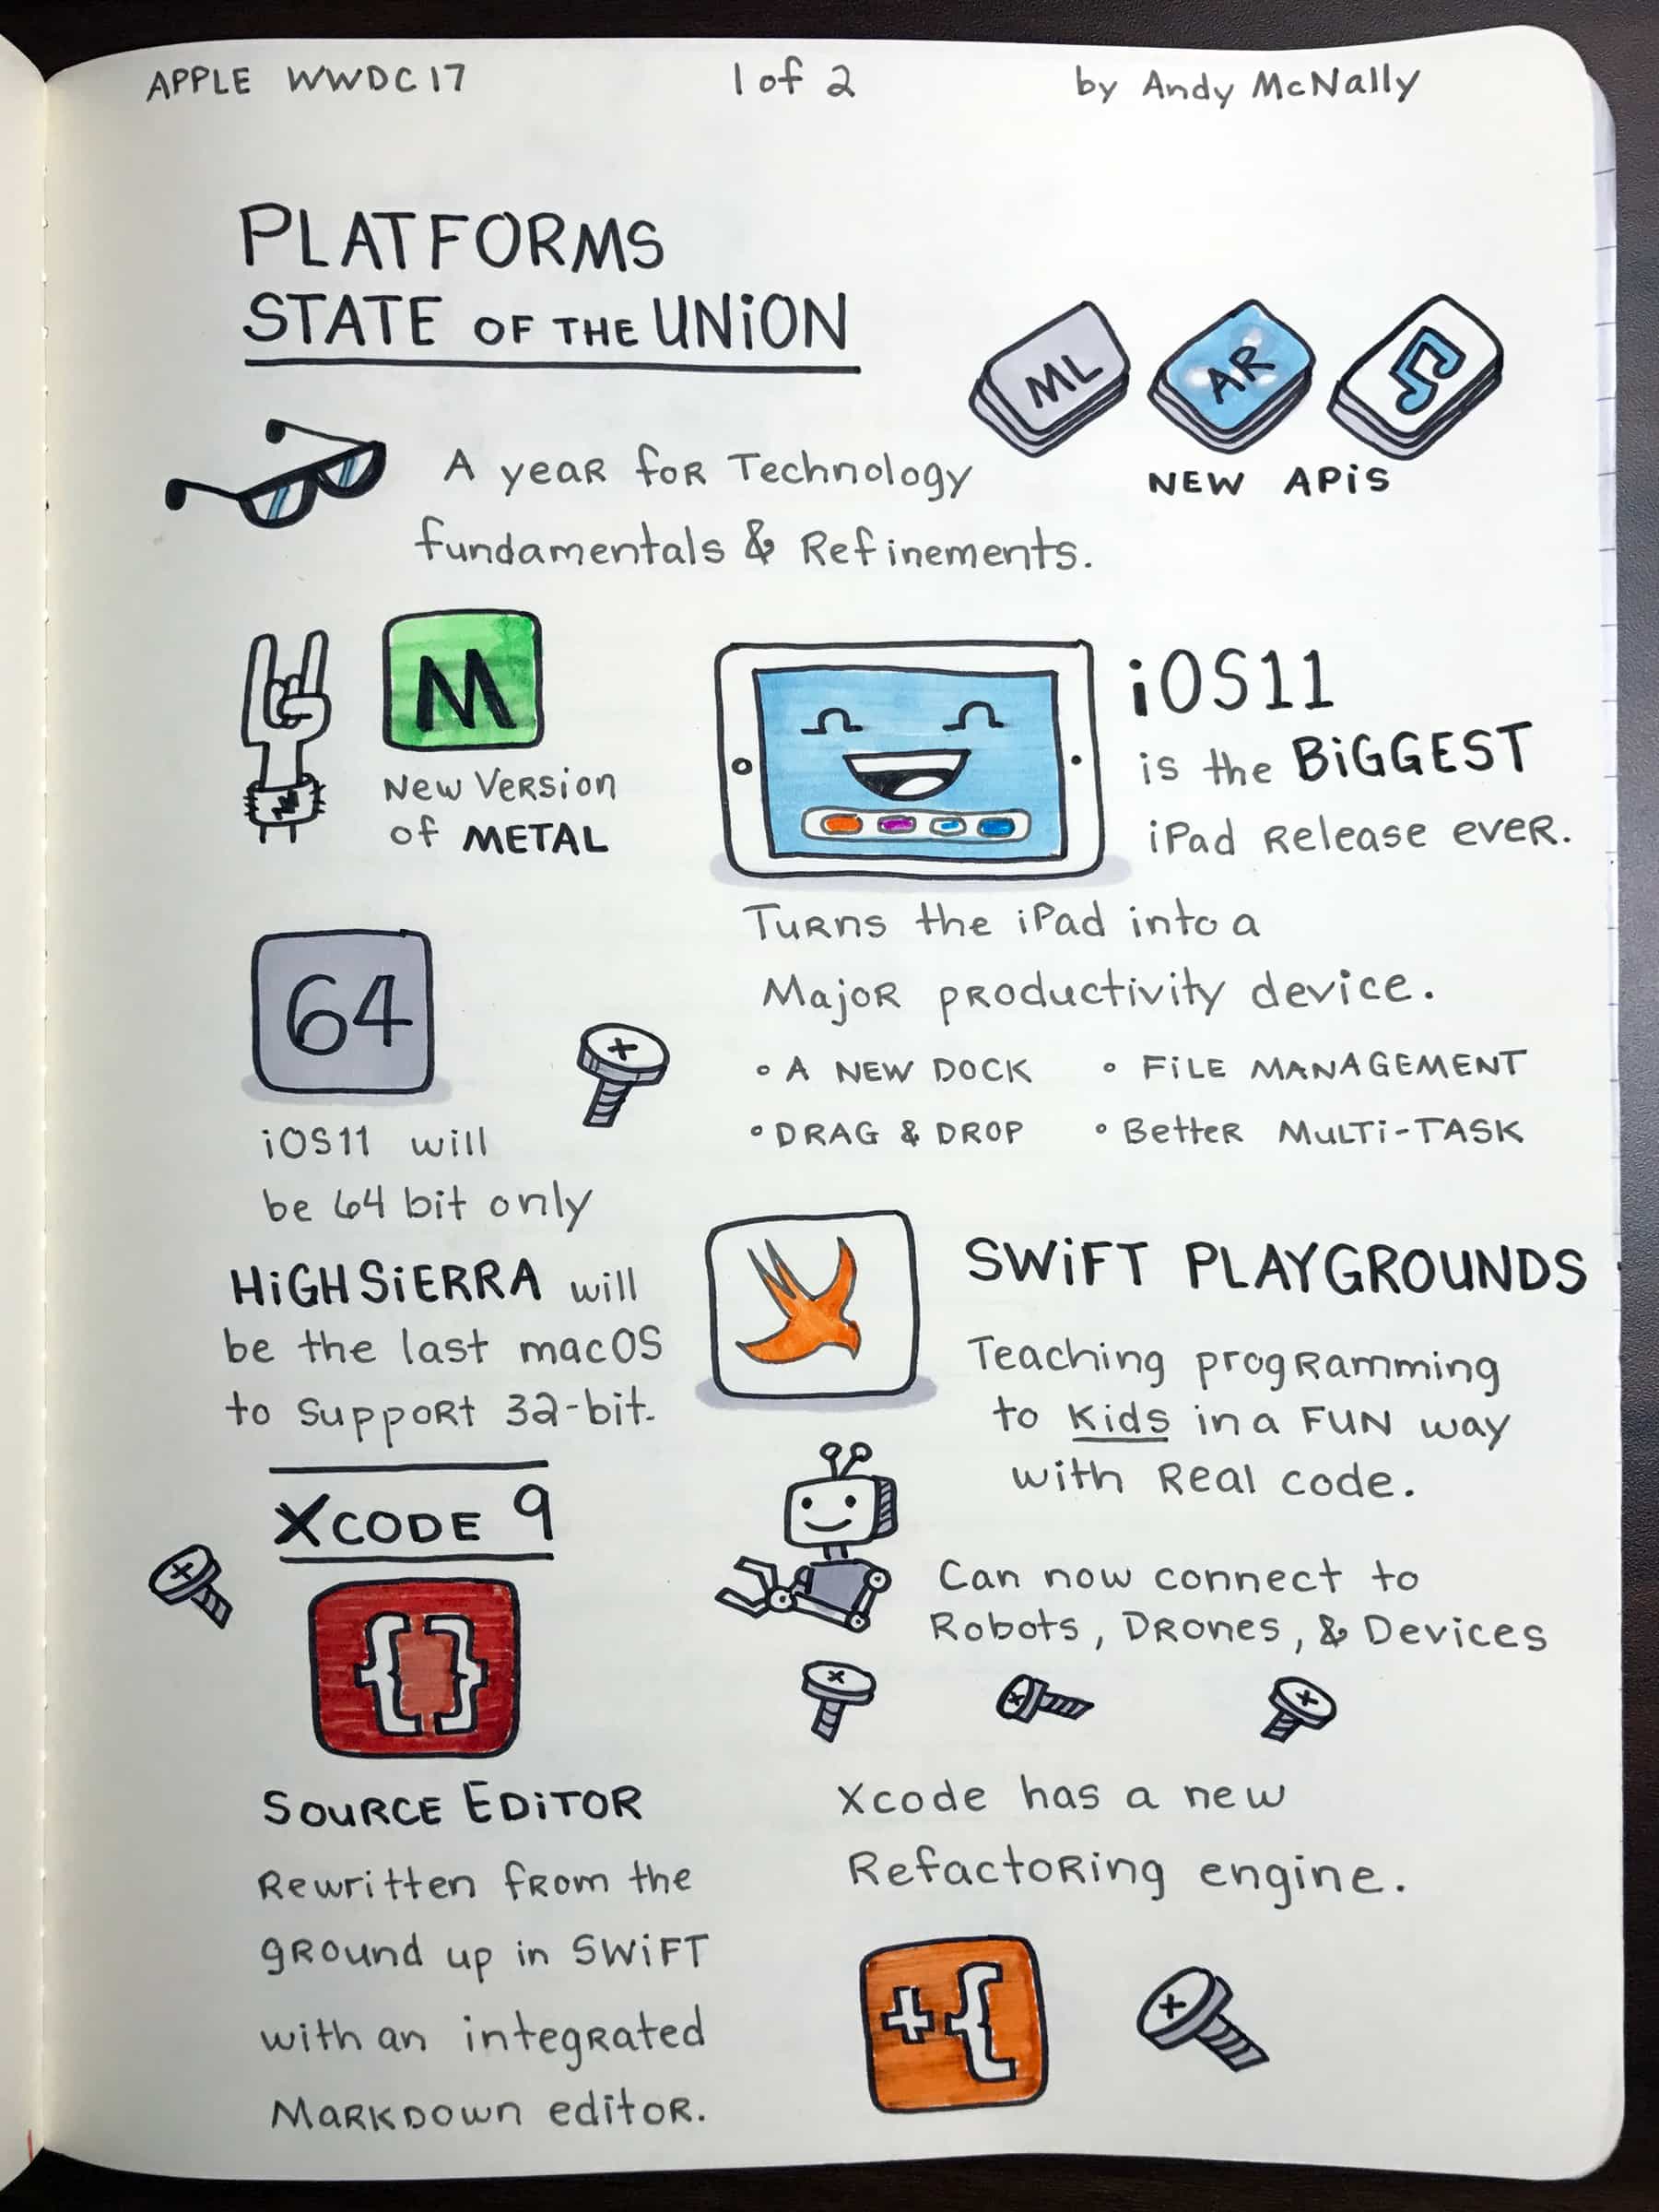 APPLE WWDC17
1 of 2
by Andy McNally
PLATFORMS
STATE OF THE UNiON
ML
AR
NEW APiS
A year for Technology
fundamentals & Refinements.
M
New Version
of METAL
iOS11
is the BiGGEST
iPad Release ever.
Turns the iPad into a
Major productivity device.
• A NEW DOCK
• FiLE MANAGEMENT
• DRAG & DROP
• Better MuLTi-TASK
64
iOS11 will
be 64 bit only
HiGH SiERRA will
be the last macOS
to support 32-bit.
SWiFT PLAYGROUNDS
Teaching programming
to Kids in a FUN way
with Real code.
Can now connect to
Robots, Drones, & Devices
XCODE 9
{ }
SOURCE EDiTOR
Rewritten from the
ground up in SWiFT
with an integrated
Markdown editor.
Xcode has a new
Refactoring engine.
+{